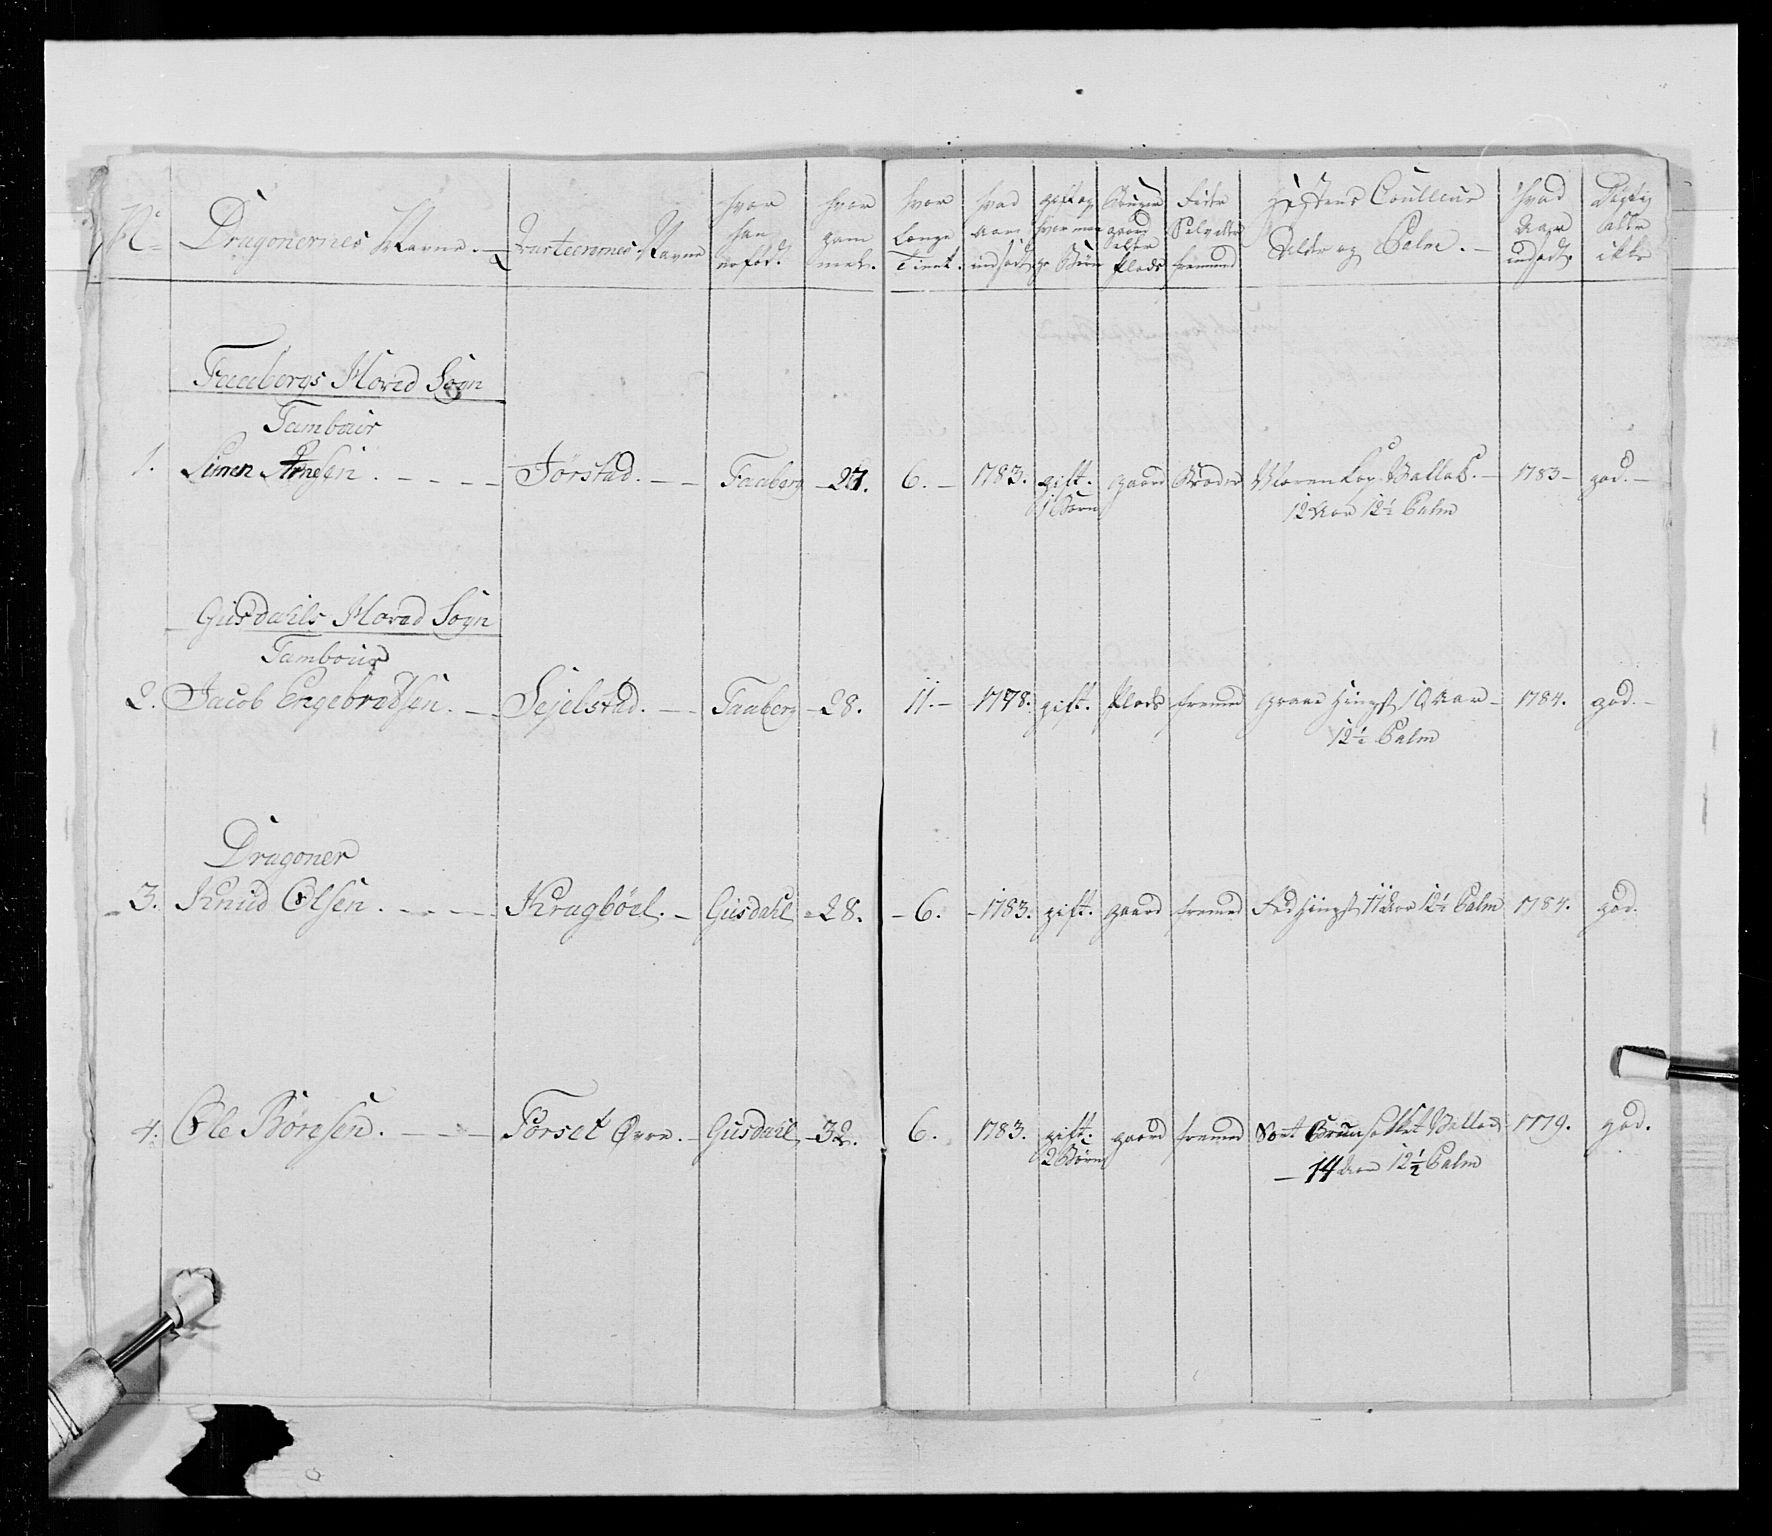 No Dragonernes Navne. Qvarteerernes Navne hvor han er fød. hvor gam mel. hvor Længe Tient. hvad Aar indsadt gift og hvor man ge Børn Bruger gaard eller Plads Føder Selv eller fremmed Hæstens Couleur Alder og Palm. hvad Aar indsadt Dygtig eller ikke
Faabergs Hoved Sogn
Tambour
1. Simen Arnesen. Jørstad. Faaberg 27. 6. 1783. gift. 1 Børn gaard Broder 1783 god.
12 Aar 12½ Palm
Gusdahls Hoved Sogn
Tambour
2. Jacob Engebretsen. Sejelstad. Faaberg 28. 11. 1778. gift. Plads fremed graae Hingst 10 Aar 1784. god.
12½ Palm
Dragoner
3. Knud Olsen. Kragböel. Gusdahl 28. 6. 1783. gift. gaard fremed Hingst 11 Aar 12½ Palm 1784. god.
4. Ole Börresen. Forset Øvre. Gusdahl 32. 6. 1783. gift. 2 Børn gaard fremed Sort 1779. god.
14 Aar 12½ Palm